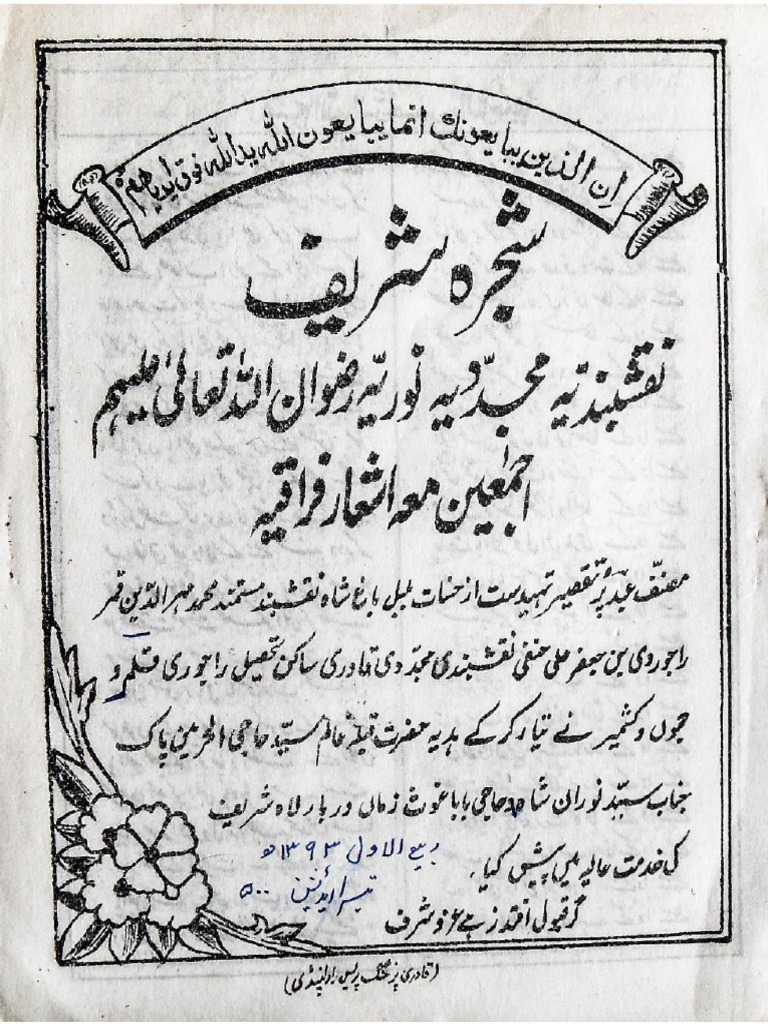 ان الذین یبایعونك انما یبایعون اللہ ید اللہ فوق ایدیہم
شجرہ شریف
نقشبندیّہ مجدّدیہ نوریّہ رضوان اللہ تعالیٰ علیہم
اجمعین معہ اشعار فراقیہ
مصنّف عبد پُر تقصیر تہیدست از حسنات بلبل باغ شاہ نقشبند مستمند محمد مہر الدّین قمر
راجوروی بن جعفر علی حنفی نقشبندی مجدّدی قادری ساکن تحصیل راجوری قلمرو
جموں و کشمیر نے تیار کر کے ہدیہ حضرت قبلہ عالم سیّد حاجی الحرمین پاک
جناب سیّد نوران شاہ حاجی بابا غوث زماں دربار لاہ شریف
کی خدمت عالیہ میں پیش کیا۔
ربیع الاول ۱۳۹۳ھ
تیسرا ایڈیشن ۵۰۰
گر قبول افتد زہے عز و شرف
(قادری پرنٹنگ پریس راولپنڈی)